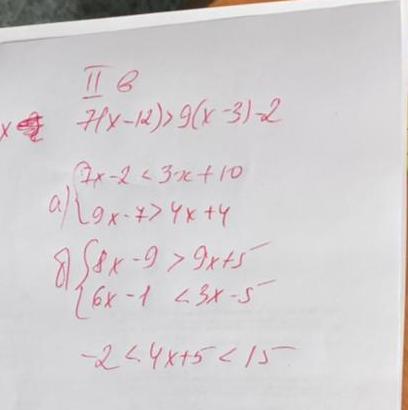 II в
x 7(x-12)>9(x-3)-2
7x-2<3x+10
а) {9x-7>4x+4
б) {8x-9>9x+5
{6x-1<3x-5
-2<4x+5<15